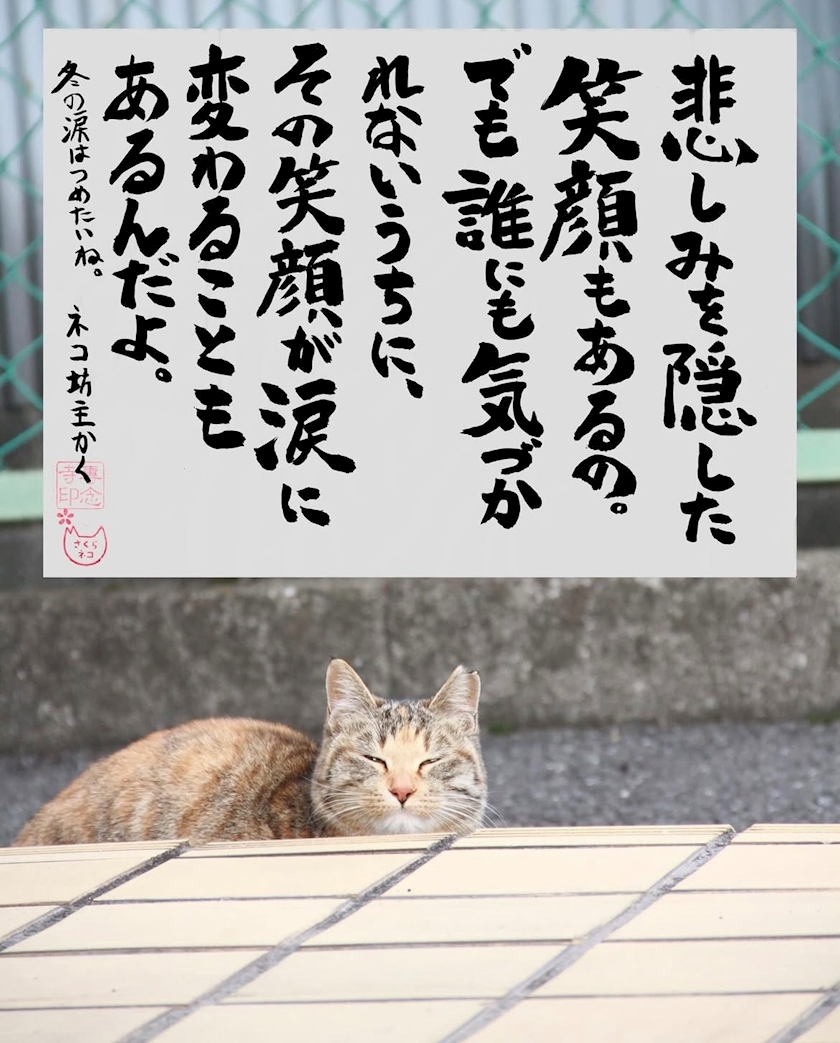 悲しみを隠した
笑顔もあるの。
でも誰にも気づか
れないうちに、
その笑顔が涙に
変わることも
あるんだよ。
冬の涙はつめたいね。
ネコ坊主かく
専念
寺印
さくら
ネコ